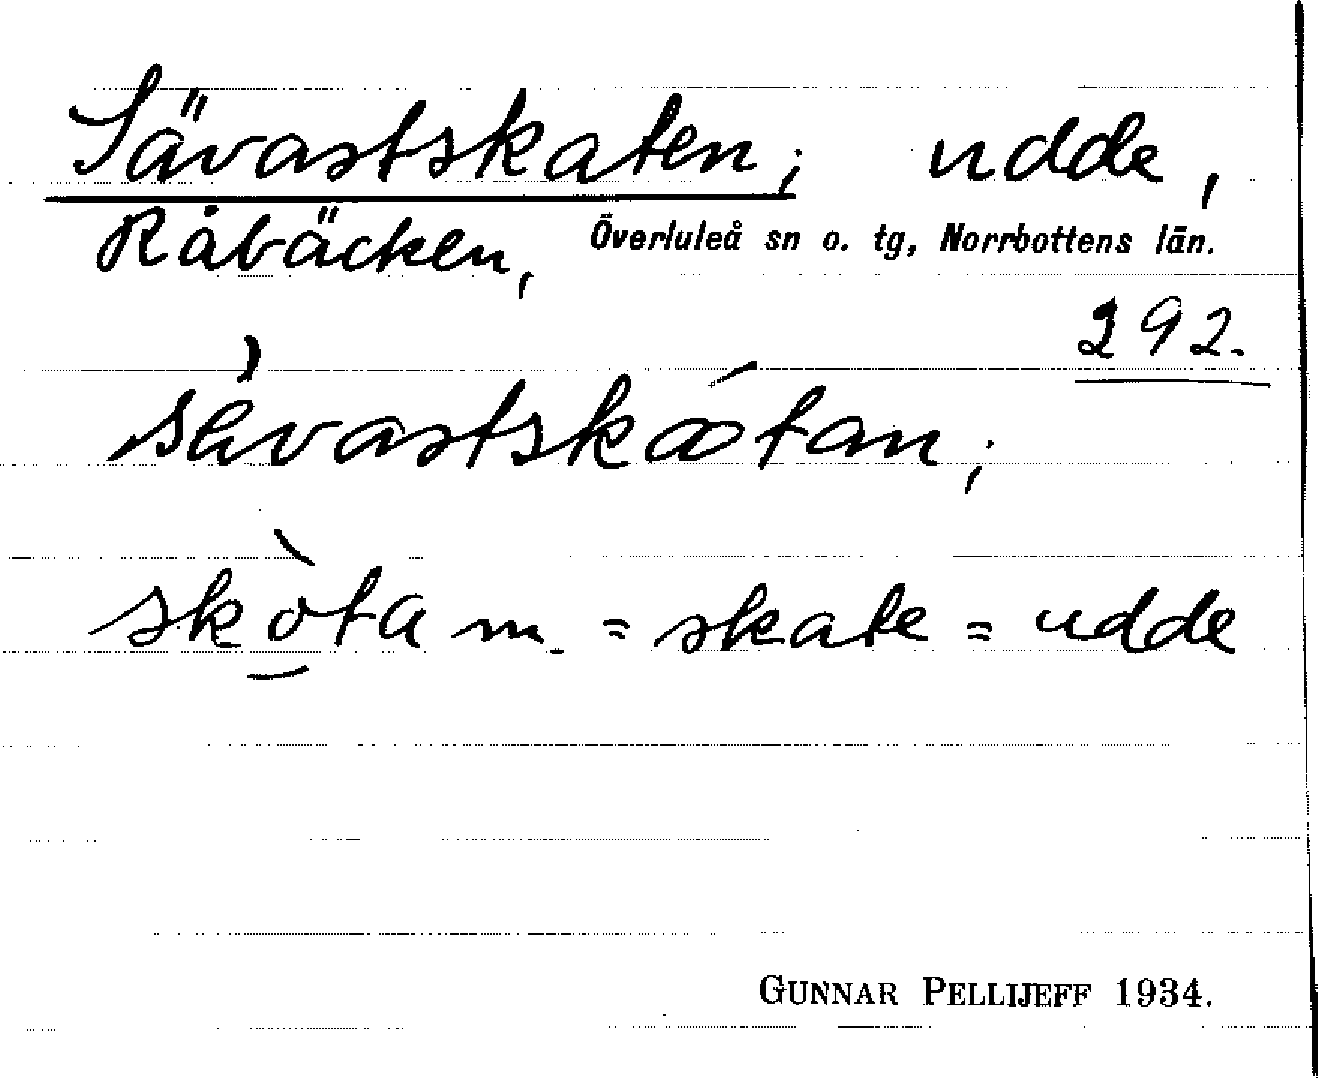 Sävastskaten; udde,
Råbäcken, Överluleå sn o. tg, Norrbottens län.
292.
sävastskåtan;
skòta m. = skate = udde
GUNNAR PELLIJEFF 1934.